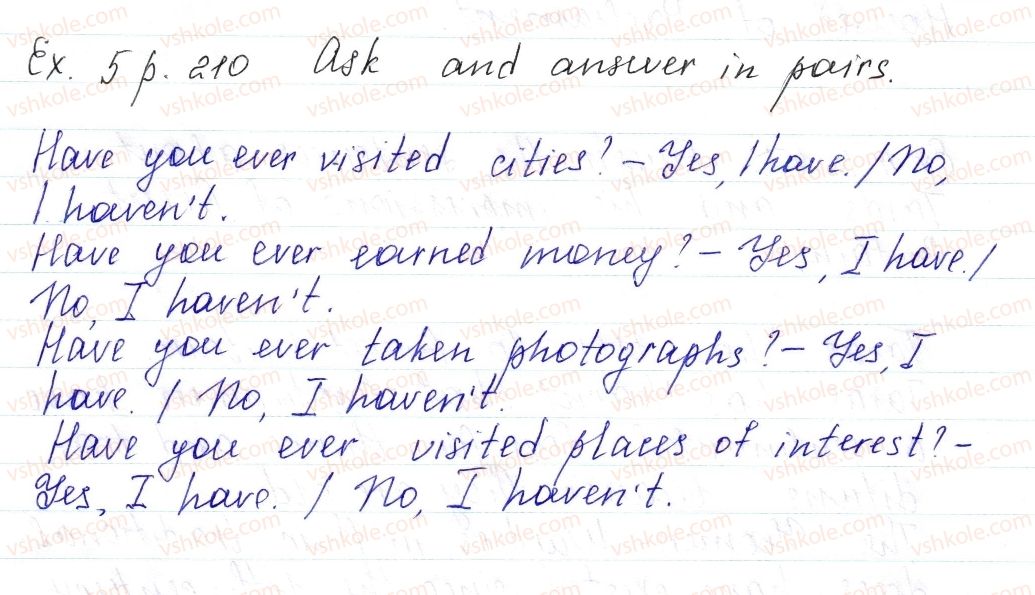 Ex. 5 p. 210 Ask and answer in pairs.
Have you ever visited cities? – Yes, I have. / No,
I haven't.
Have you ever earned money? – Yes, I have. /
No, I haven't.
Have you ever taken photographs? – Yes, I
have. / No, I haven't.
Have you ever visited places of interest? –
Yes, I have. / No, I haven't.
vshkole.com